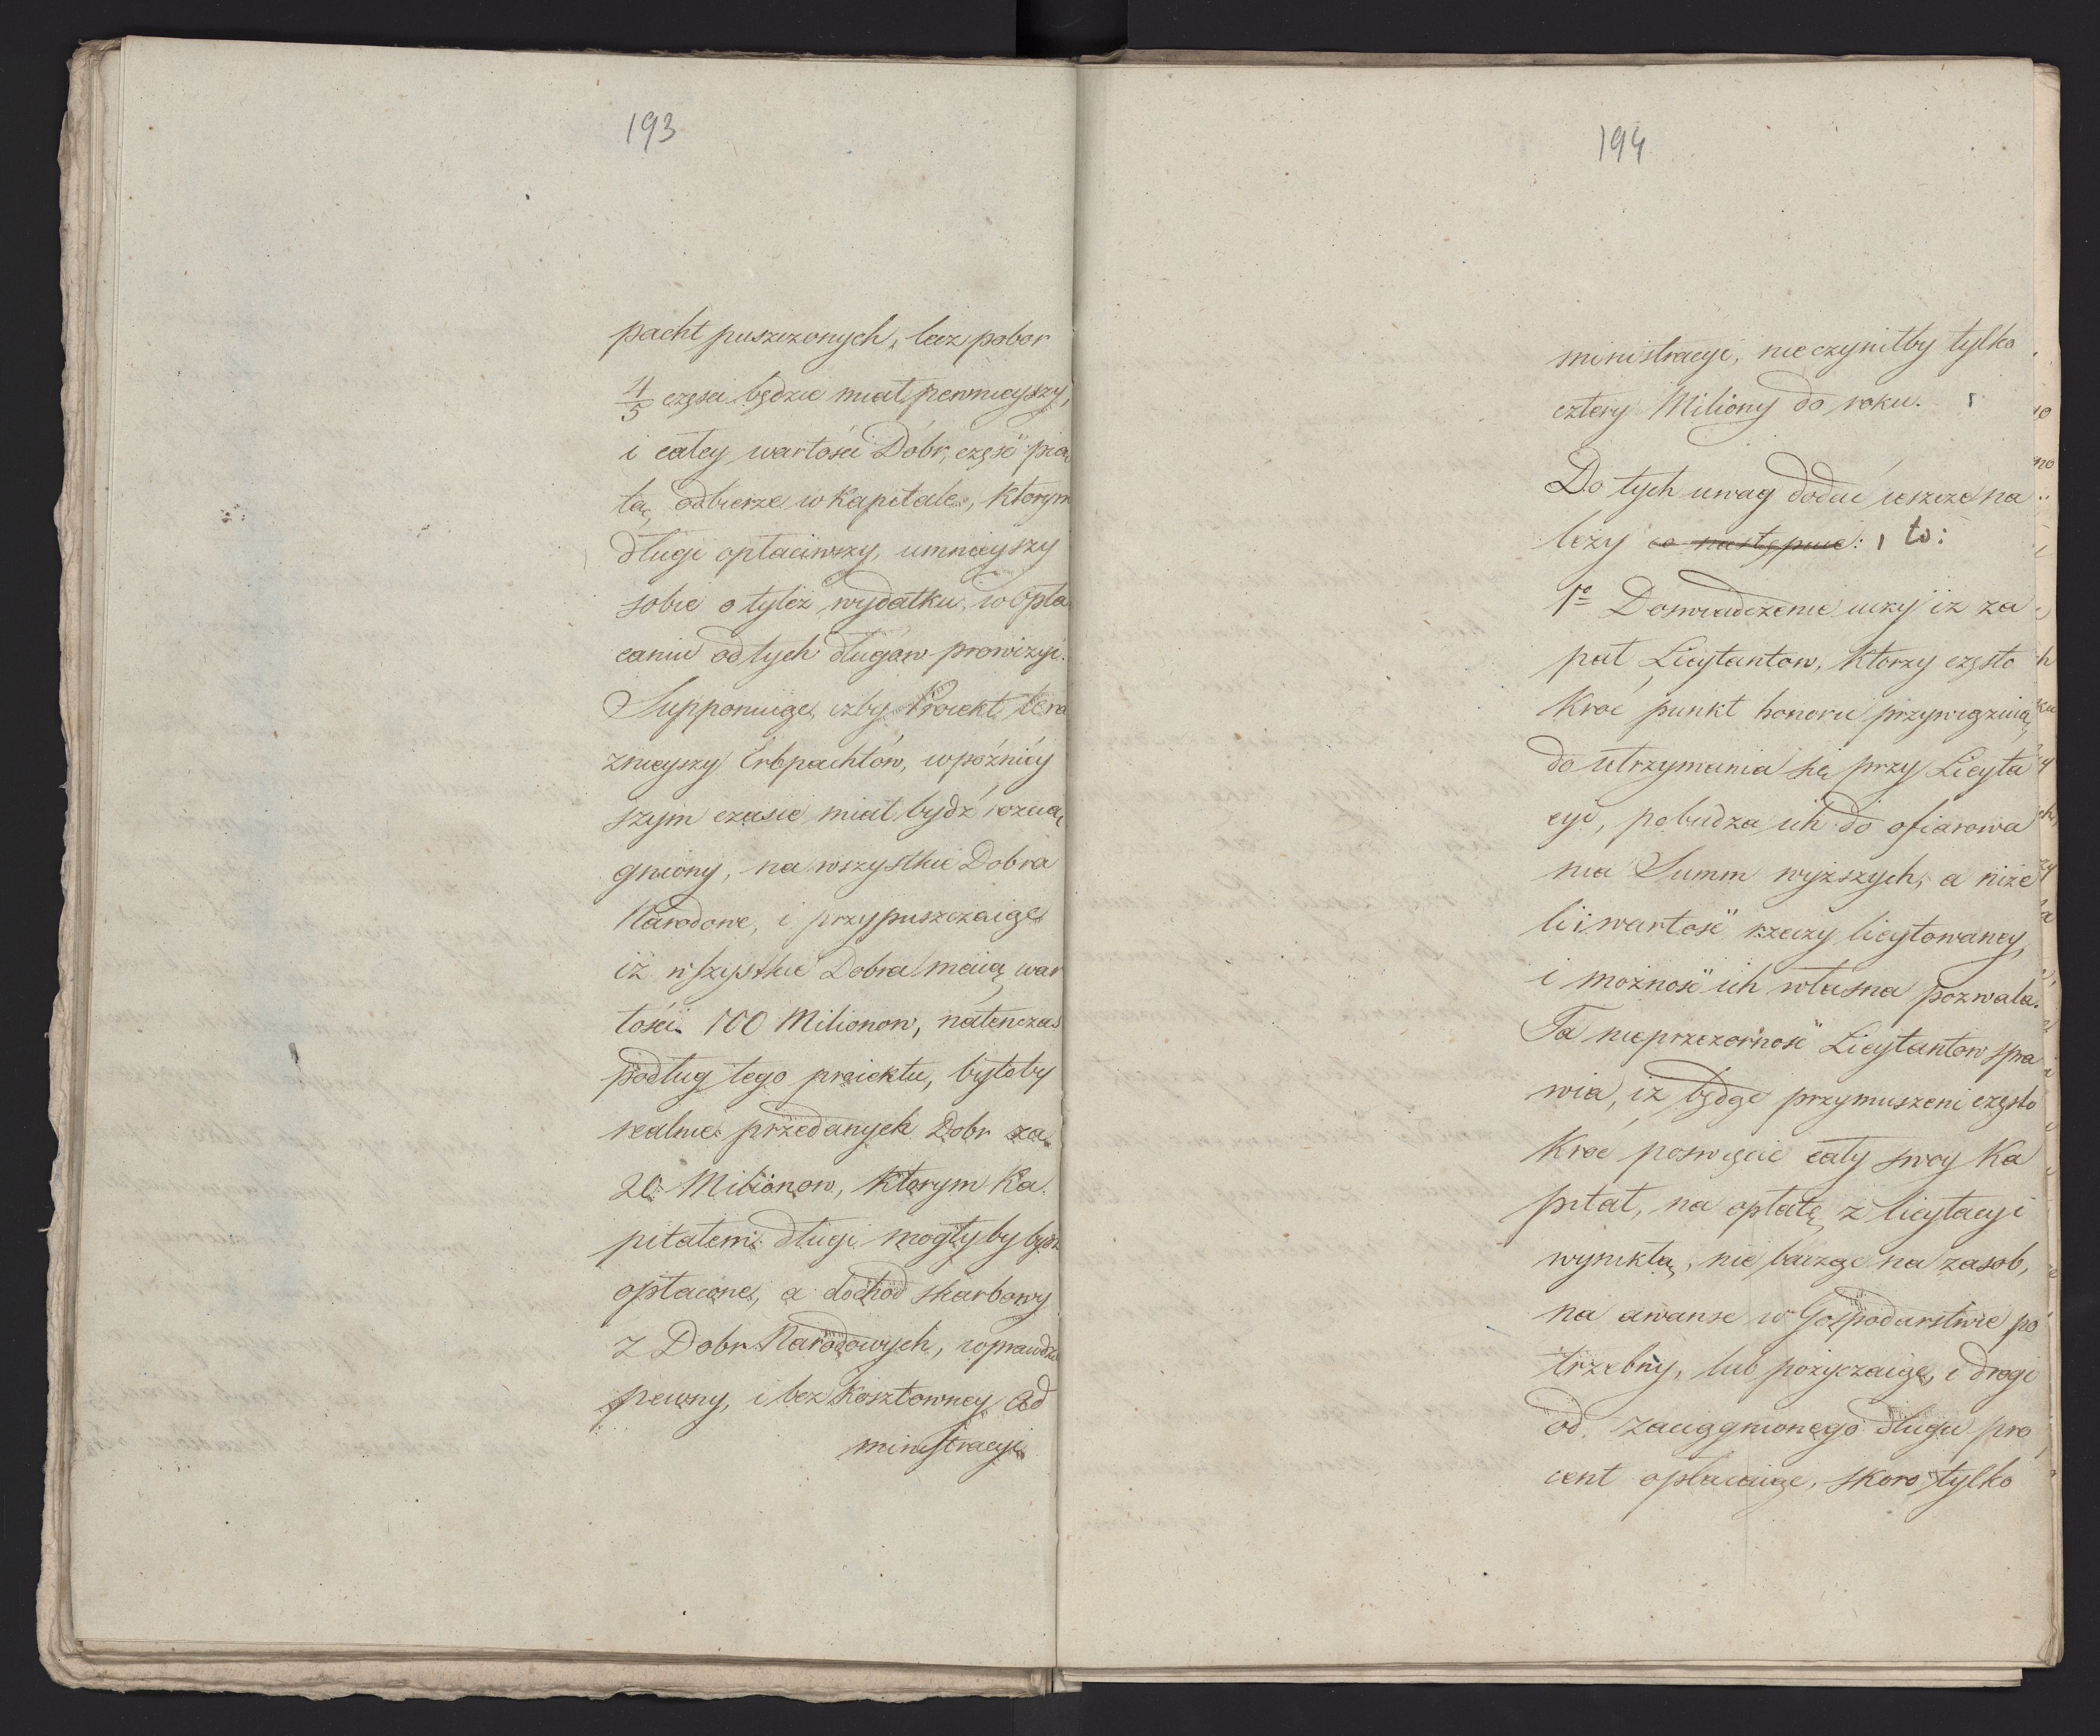 193
pacht puszczonych, lecz pobor
4/5 częsci będzie miał pewnieyszy,
i całey wartości Dóbr, część pią
tą, odbierze w Kapitale, ktorym
długi opłaciwszy, umnieyszy
sobie o tyleż wydatku, w opła
caniu od tych długów prowizyi.
Supponuiąc, iżby Proiekt tera
znieyszy Erbpachtów, w późniey
szym czasie miał bydź rozcią
gniony, na wszystkie Dobra
Narodowe, i przypuszczaiąc
iż wszystkie Dobra maią war
tości 100 Milionow, natenczas
podług tego proiektu, byłoby
realnie przedanych Dobr za
20 Milionow, ktorym Ka
pitałem długi mogłyby bydź
opłacone, a dochod skarbowy
z Dobr Narodowych, wprawdzie
pewny, i bez kosztowney Ad
ministracyi
194
ministracyi, nie czyniłby tylko
cztery Miliony do roku.
Do tych uwag dodać ieszcze na
leży co następuie: to:
1o Doswiadczenie uczy iż za
pał Licytantow, ktorzy często
kroć punkt honoru przywięzuią
do utrzymania się przy Licyta
cyi, pobudza ich do ofiarowa
nia Summ wyższych, a niże
li i wartość rzeczy licytowaney,
i możność ich własna pozwala.
Ta nieprzezorność Licytantow spra
wia, iż będąc przymuszeni często
kroć poswięcić cały swoy Ka
pitał, na opłatę z licytacyi
wynikłą, nie bacząc na zasob,
na awanse w Gospodarstwie po
trzebny, lub pożyczaiąc, i drogi
od zaciągnionego długu pro
cent opłacaiąc, skoro tylko